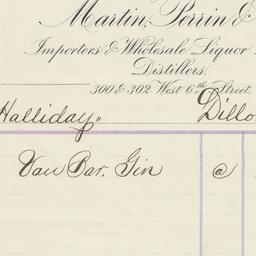 Martin, Perrin &
Importers & Wholesale Liquor
Distillers.
300 & 302 West 6th Street,
Halliday,, Dillo
Van Bar. Gin @